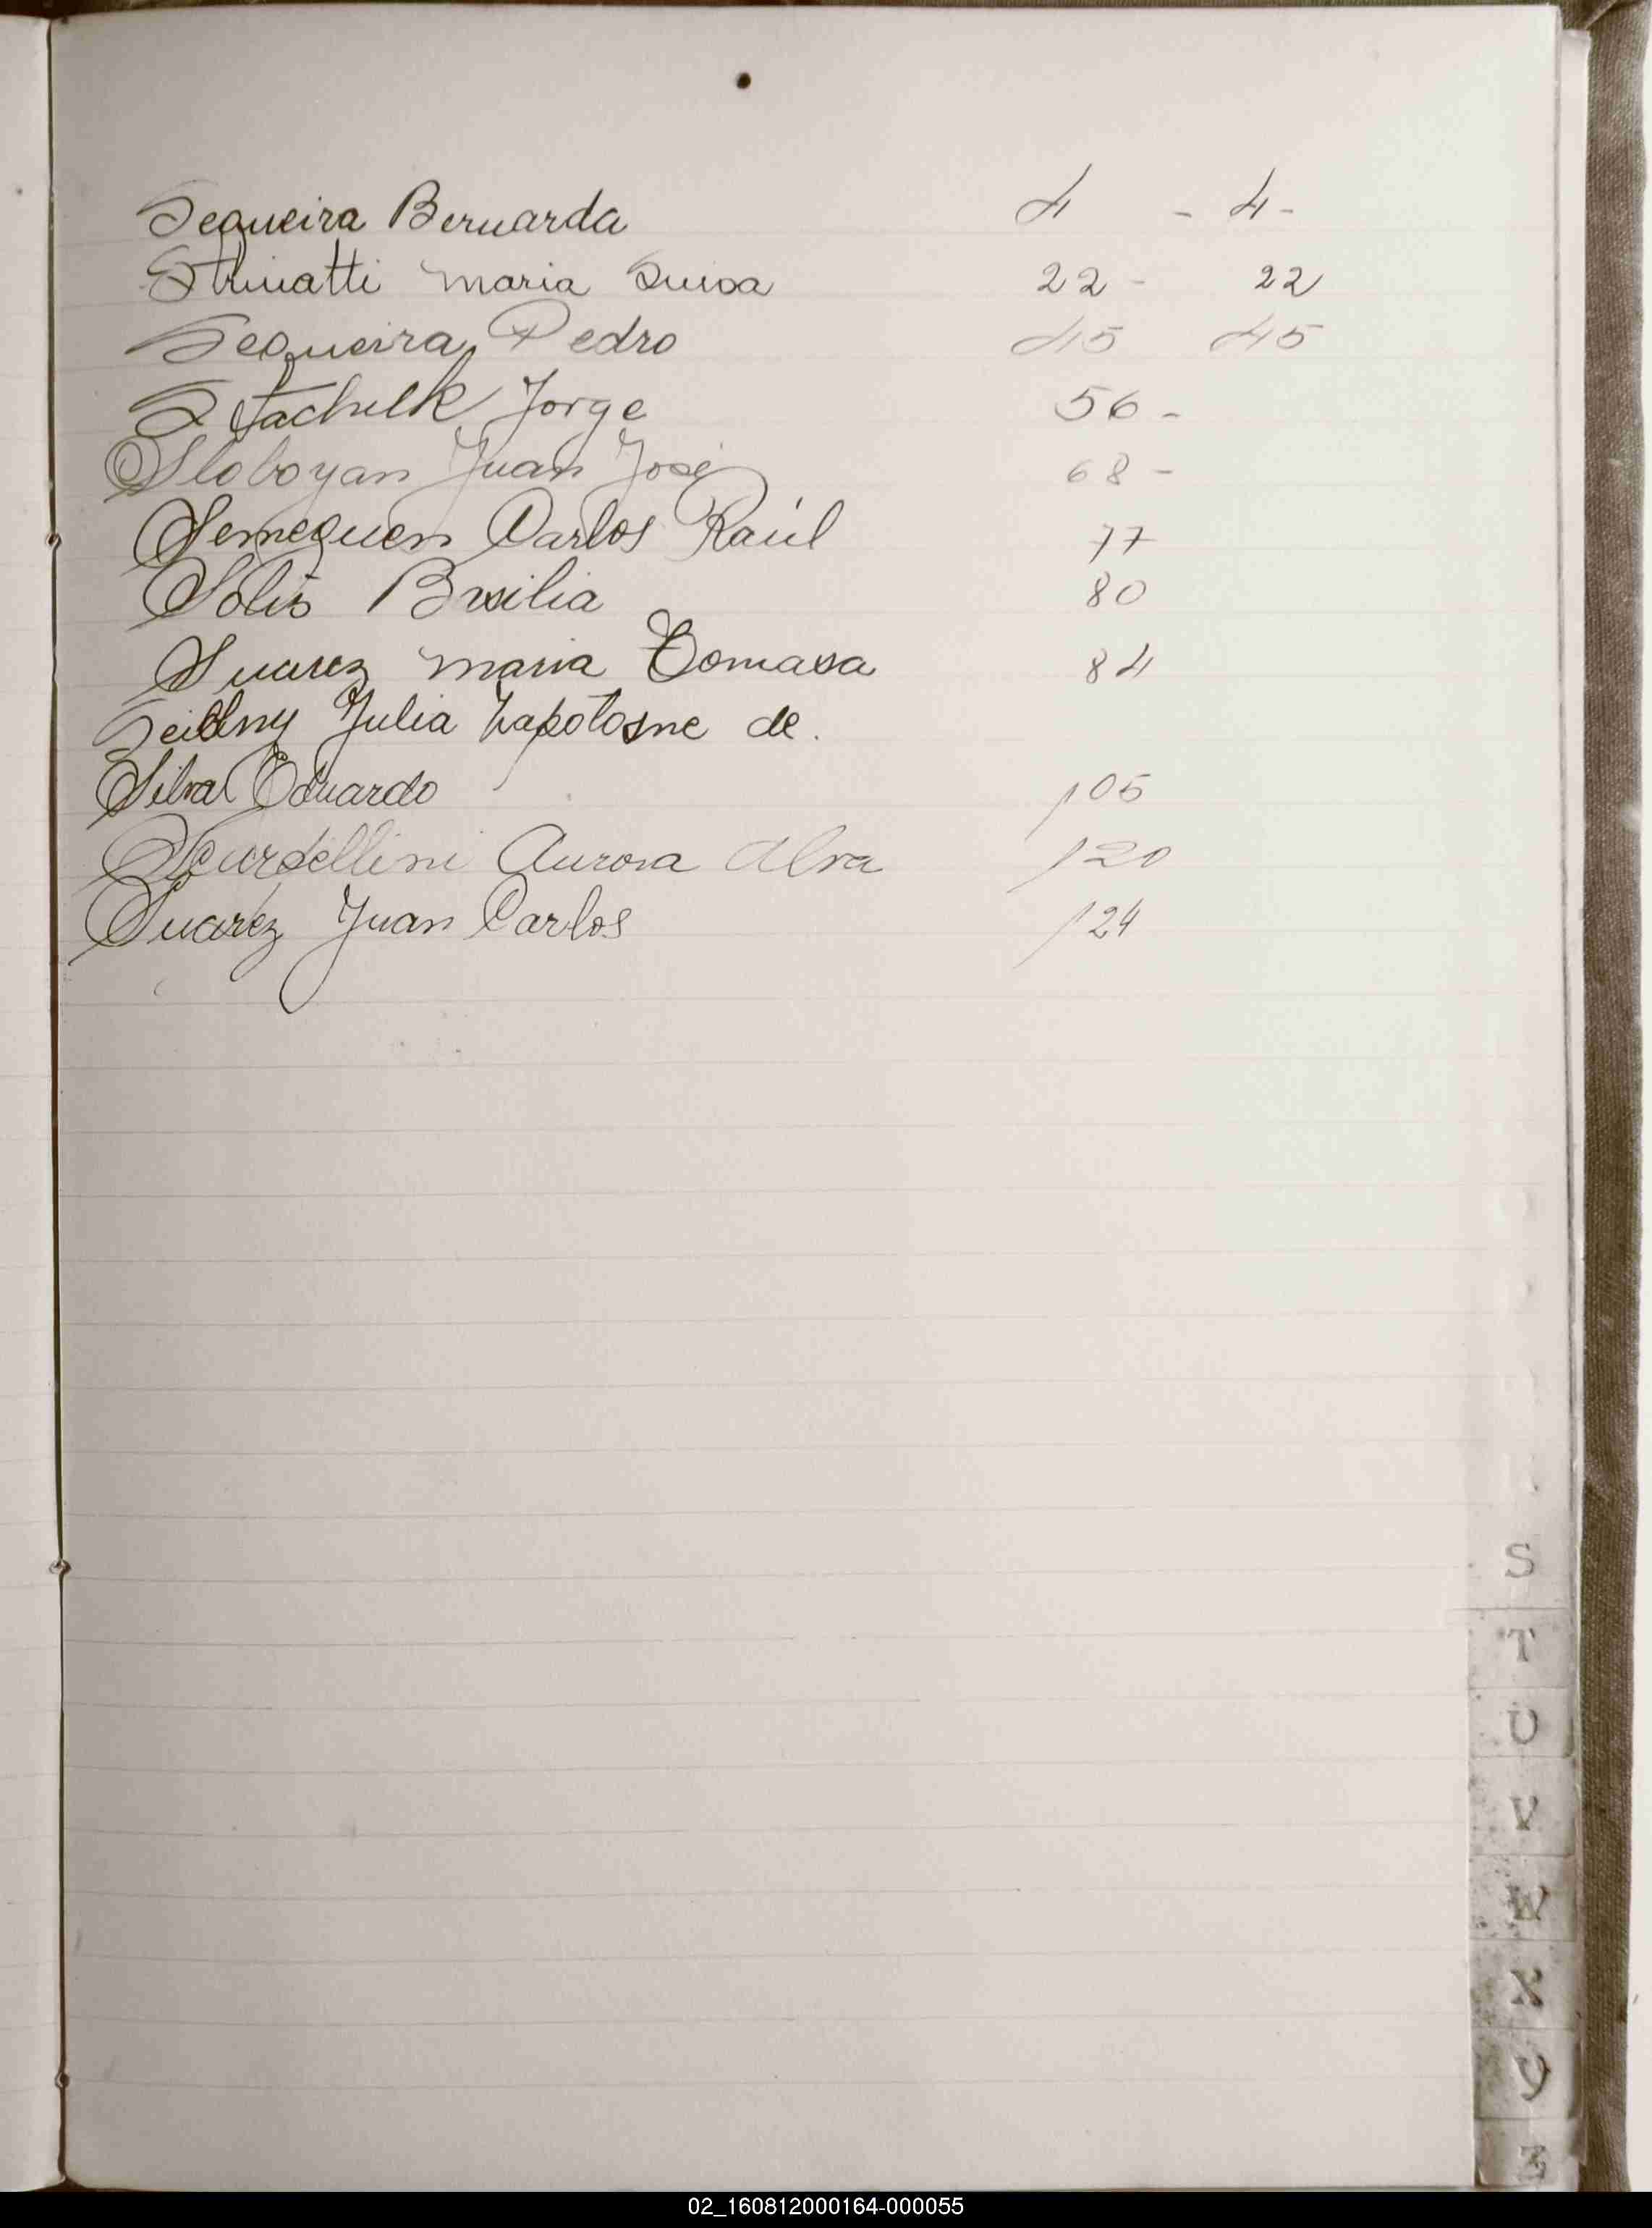 Sequeira Bernarda 4 - 4 -
Strinatti Maria Luisa 22 - 22
Sequeira Pedro 45 45
Stachulk Jorge 56 -
Sloboyan Juan José 68 -
Semeguen Carlos Raúl 77
Solis Basilia 80
Suarez Maria Tomasa 84
Julia de.
Silva Eduardo 105
Scurdellini Aurora Alva 120
Suarez Juan Carlos 124
S
T
U
V
W
X
Y
Z
02_160812000164-000055